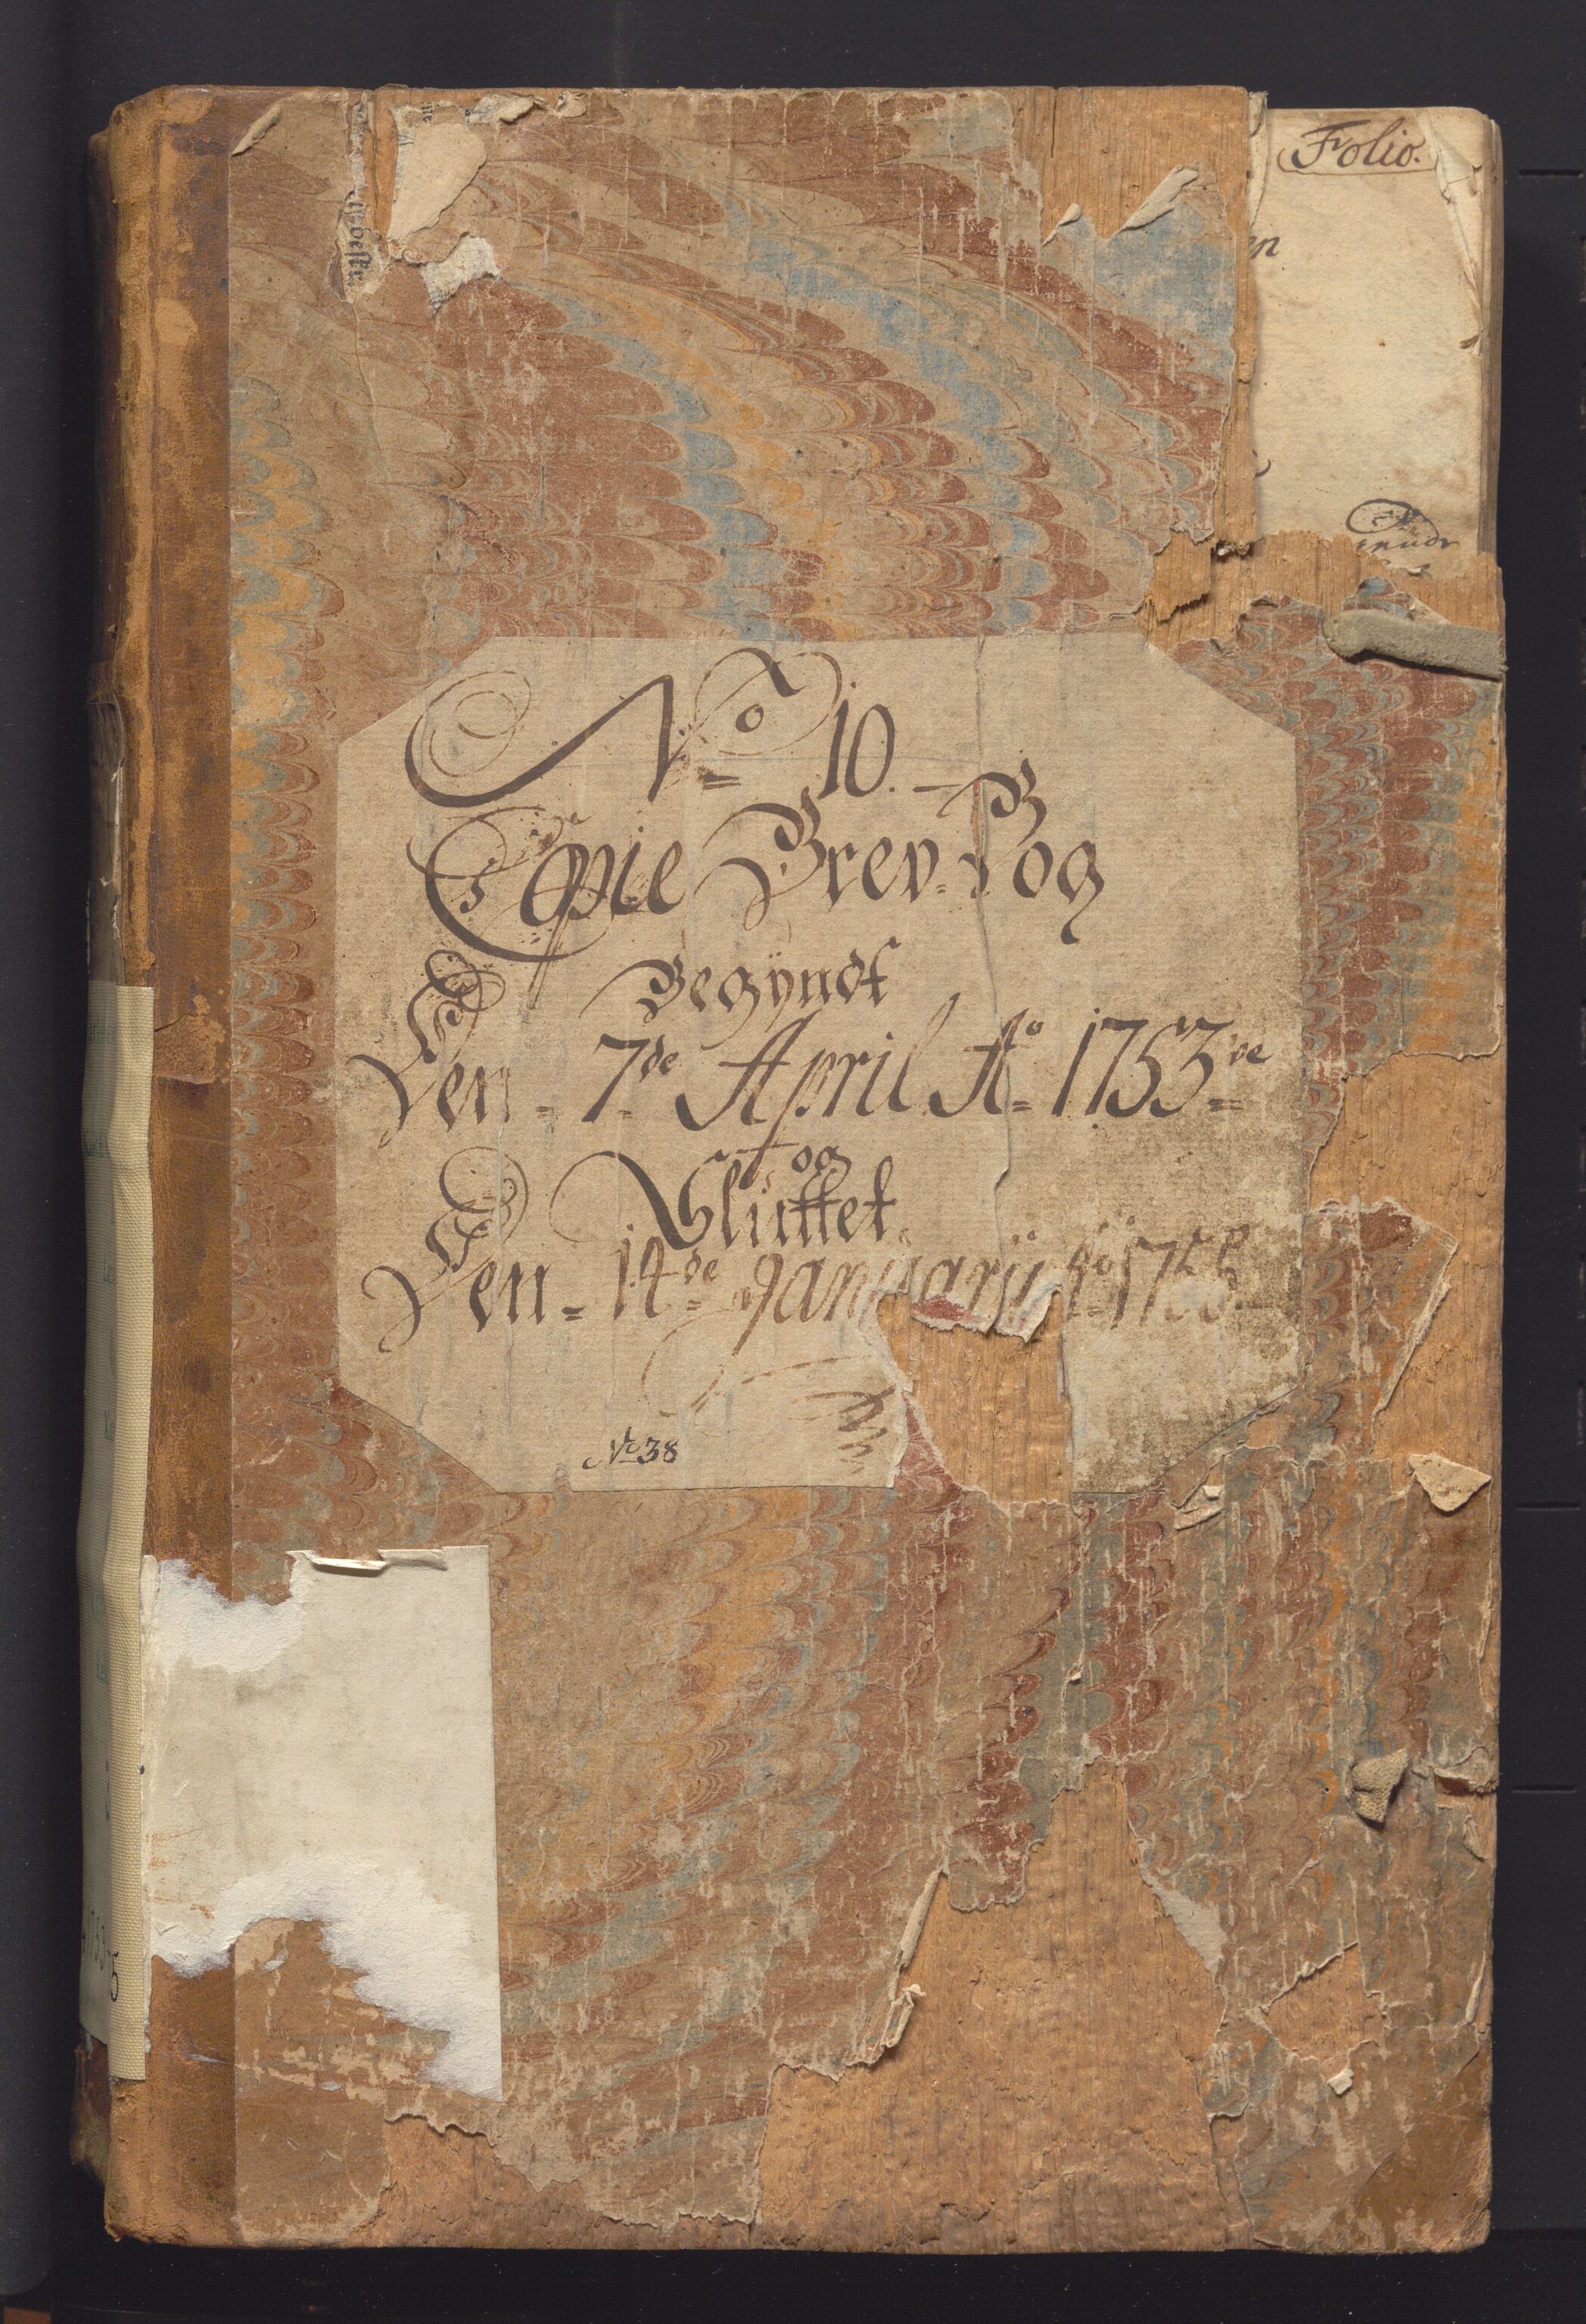 Folio.
en
No 10.
Copie Brev-Bog
Begÿndt
Den 7de April Ao 1753de
og
Sluttet
Den 14de Januarÿ Ao 175
No 38